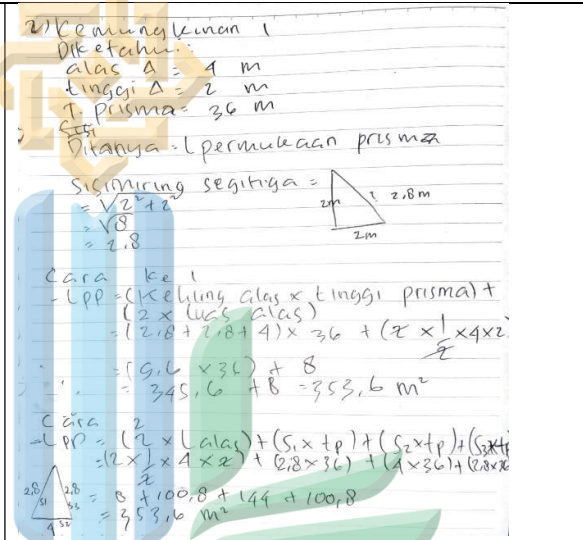 2) Kemungkinan 1
Diketahui:
alas Δ = 4 m
tinggi Δ = 2 m
T. prisma = 36 m
Ditanya = L permukaan prisma
Sisi miring segitiga =
= √2² + 2²
= √8
= 2,8
2m
? 2,8m
2m
Cara ke 1
- Lpp = (Keliling alas x tinggi prisma) +
(2 x luas alas)
= (2,8 + 2,8 + 4) x 36 + (2 x 1/2 x 4 x 2
= (9,6 x 36) + 8
= 345,6 + 8 = 353,6 m²
Cara 2
- Lpp = (2 x L alas) + (S1 x tp) + (S2 x tp) + (S3 x tp
= (2 x 1/2 x 4 x 2) + (2,8 x 36) + (4 x 36) + (2,8 x 36
= 8 + 100,8 + 144 + 100,8
= 353,6 m²
2,8
S1
2,8
S3
4
S2